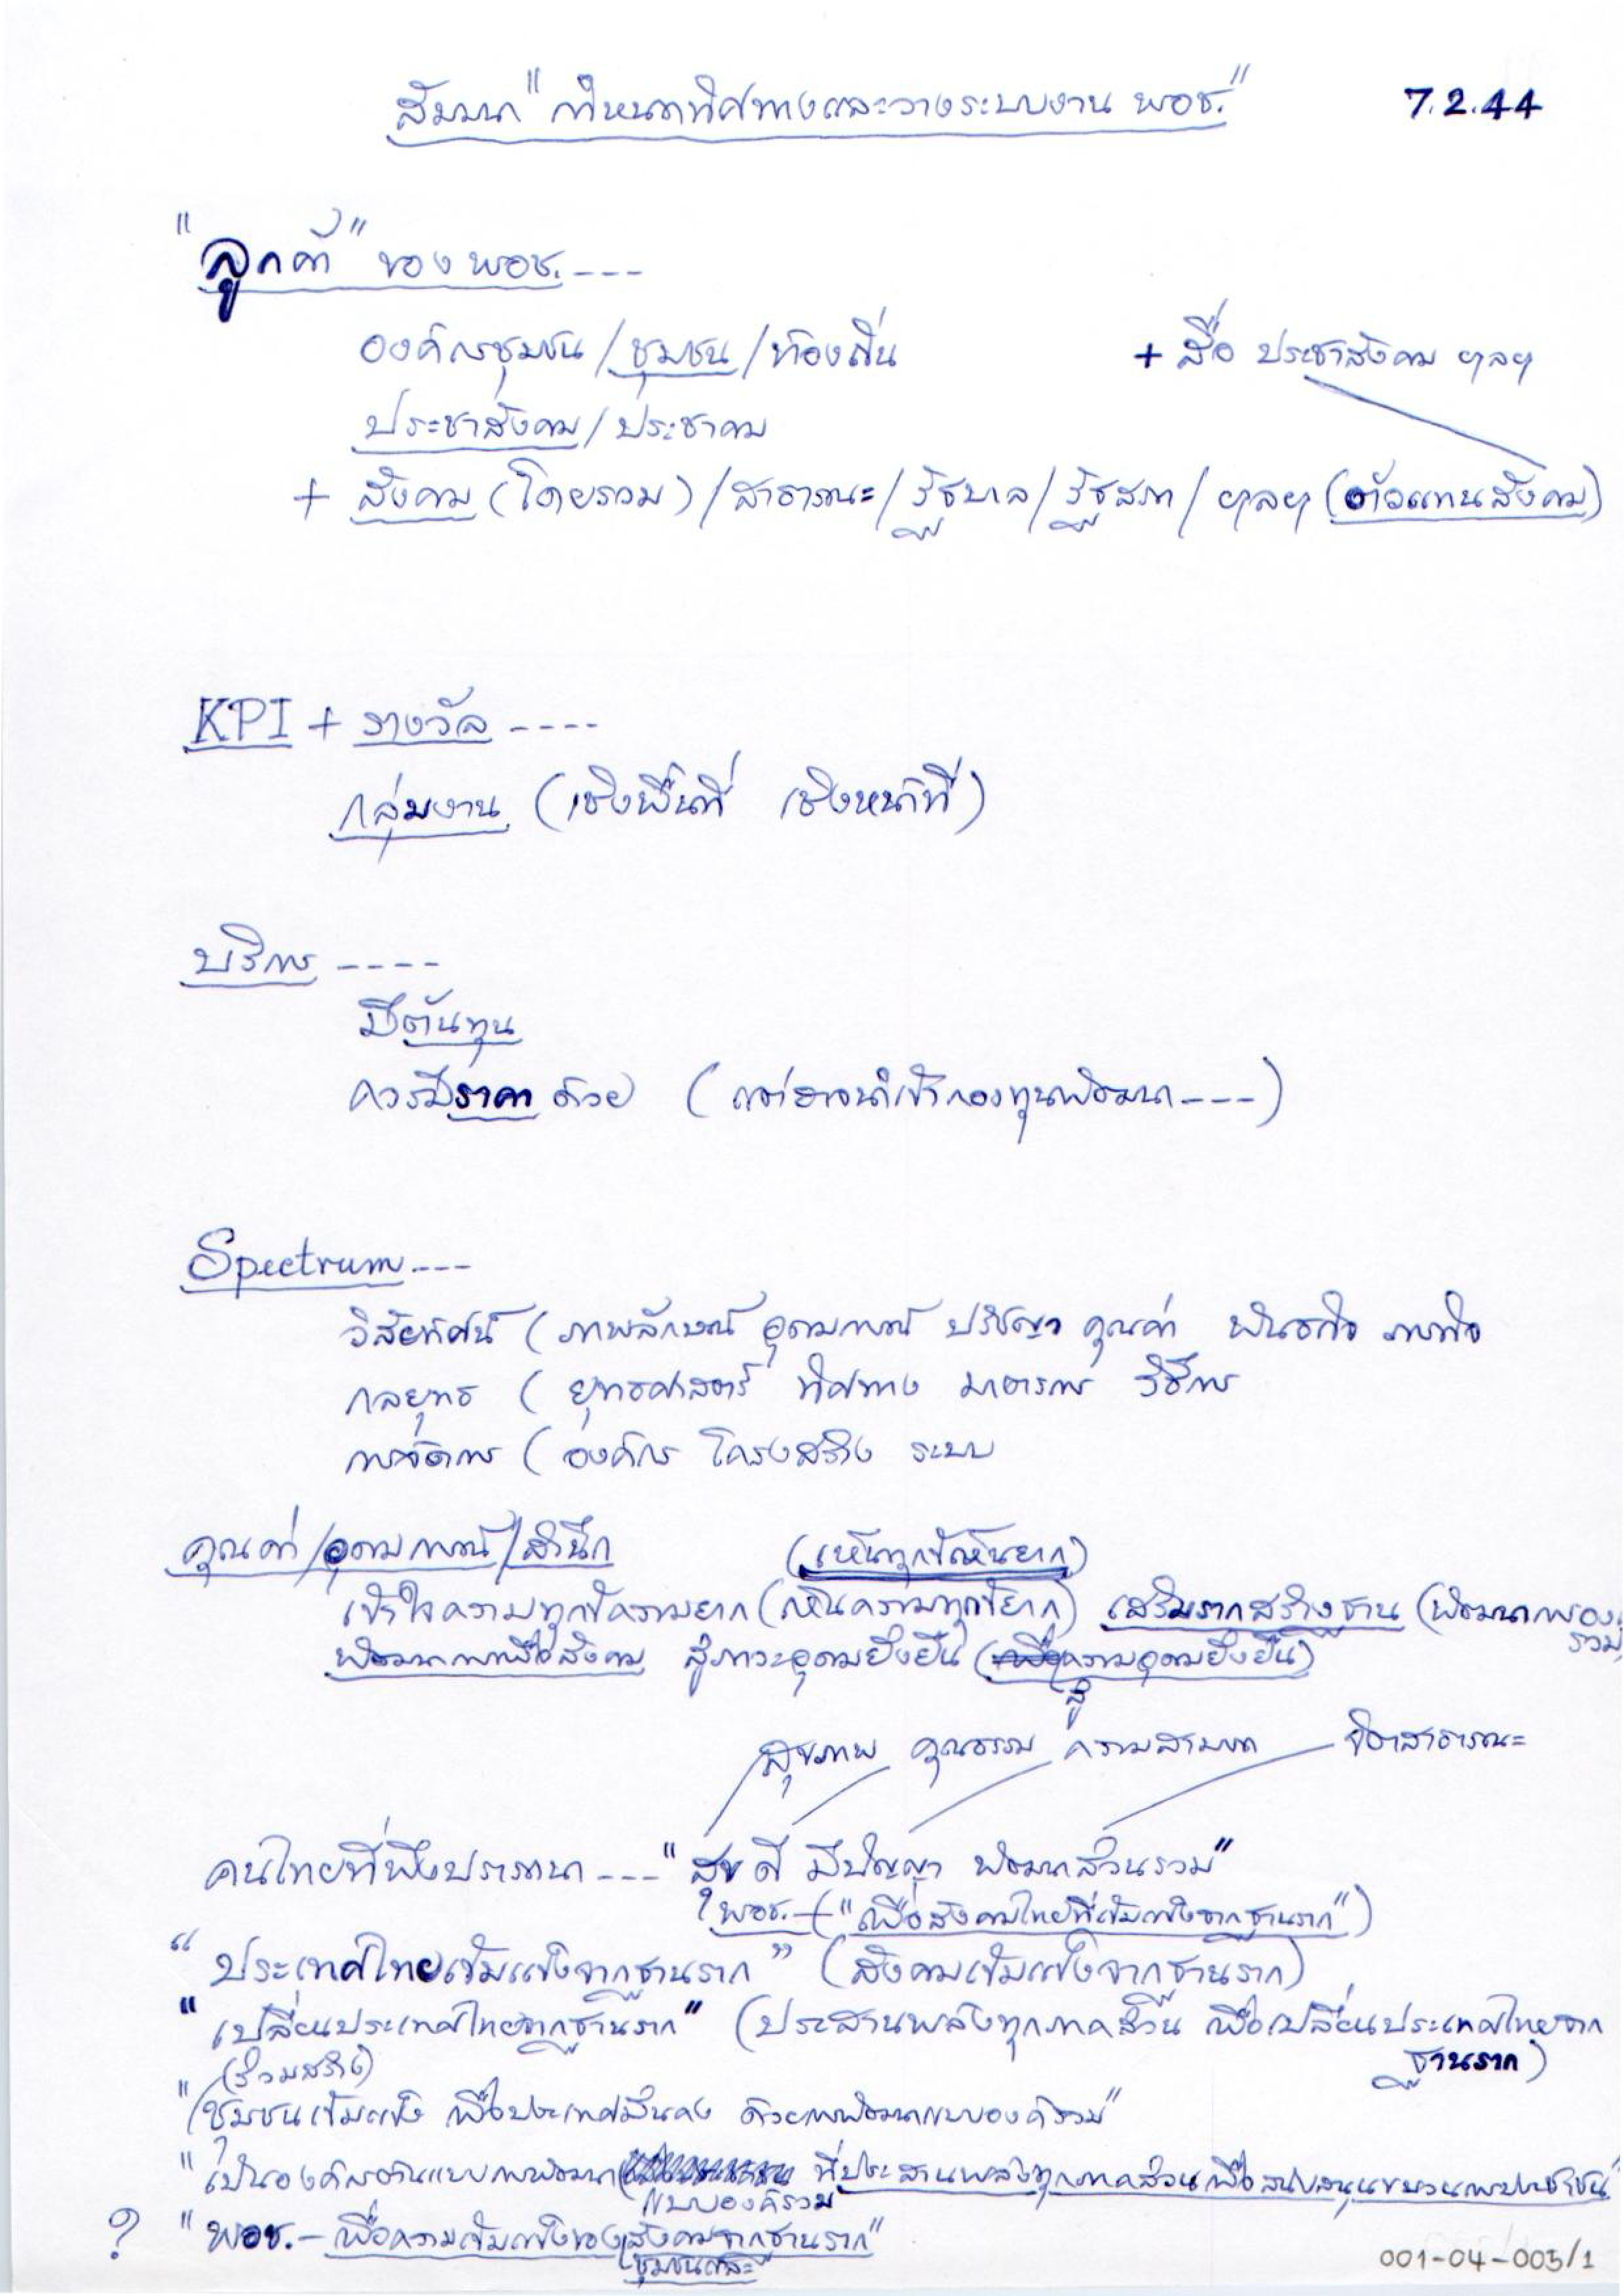 สัมมนา "กำหนดทิศทางและวางระบบงาน พอช." 7.2.44
"ลูกค้า" ของ พอช. ----
องค์กรชุมชน / ชุมชน / ท้องถิ่น + สื่อ ประชาสังคม ฯลฯ
ประชาสังคม / ประชาคม
+ สังคม (โดยรวม) / สาธารณะ / รัฐบาล / รัฐสภา / ฯลฯ (ตัวแทนสังคม)
KPI + รางวัล ----
กลุ่มงาน (เชิงพื้นที่ เชิงหน้าที่)
บริการ ----
มีต้นทุน
ควรมีราคาด้วย (แต่อาจนำเข้ากองทุนพัฒนา ----)
Spectrum ----
วิสัยทัศน์ (ภาพลักษณ์ อุดมการณ์ ปรัชญา คุณค่า พันธกิจ ภารกิจ
กลยุทธ (ยุทธศาสตร์ ทิศทาง มาตรการ วิธีการ
การจัดการ (องค์กร โครงสร้าง ระบบ
คุณค่า / อุดมการณ์ / สำนึก (เห็นทุกข์เห็นยาก)
เข้าใจความทุกข์ความยาก (เห็นความทุกข์ยาก) เสริมรากสร้างฐาน (พัฒนาการอง
รวม)
พัฒนาการเพื่อสังคม สู่ภาวะอุดมยั่งยืน (เพื่อความอุดมยั่งยืน)
สู่
สุขภาพ คุณธรรม ความสามารถ จิตสาธารณะ
คนไทยที่พึงปรารถนา ---- "สุข ดี มีปัญญา พัฒนาส่วนรวม"
? พอช. - ("เพื่อสังคมไทยที่เข้มแข็งจากฐานราก")
"ประเทศไทยเข้มแข็งจากฐานราก" (สังคมเข้มแข็งจากฐานราก)
"เปลี่ยนประเทศไทยจากฐานราก" (ประสานพลังทุกภาคส่วน เพื่อเปลี่ยนประเทศไทยจาก
ฐานราก)
(ร่วมสร้าง)
"ชุมชนเข้มแข็ง เพื่อประเทศมั่นคง ด้วยการพัฒนาแบบองค์รวม"
"เป็นองค์กรด้านแบบการพัฒนา ที่ประสานพลังทุกภาคส่วนเพื่อสนับสนุนขบวนการประชาชน"
แบบองค์รวม
? "พอช. - เพื่อความเข้มแข็งของสังคมจากฐานราก"
ชุมชนและ
001-04-003/1